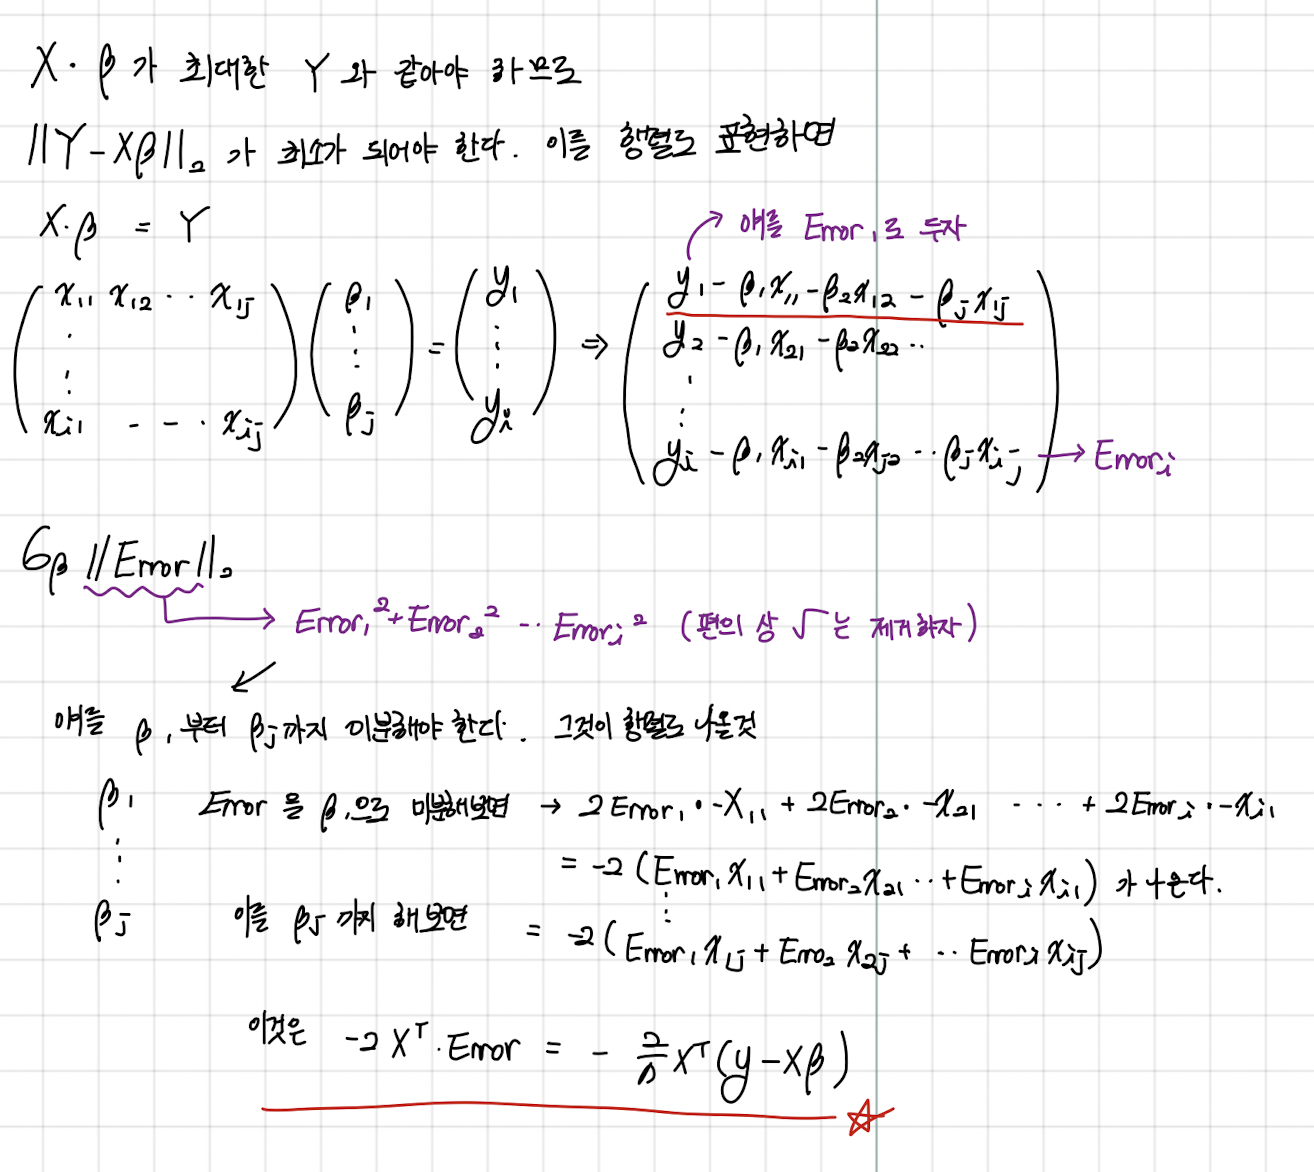 X · β 가 최대한 Y 와 같아야 하므로
||Y - Xβ||₂ 가 최소가 되어야 한다. 이를 행렬로 표현하면
X·β = Y
얘를 Error₁로 두자
( x₁₁ x₁₂ ·· x₁ⱼ ⋮ xᵢ₁ - - · xᵢⱼ ) ( β₁ ⋮ βⱼ ) = ( y₁ ⋮ yᵢ ) ⇒ ( y₁ - β₁x₁₁ - β₂x₁₂ - βⱼx₁ⱼ
y₂ - β₁x₂₁ - β₂x₂₂ ··
⋮
yᵢ - β₁xᵢ₁ - β₂xⱼ₂ ·· βⱼxᵢⱼ ) → Errorᵢ
6β ||Error||₂
→ Error₁² + Error₂² ·· Errorᵢ² (편의 상 √ 는 제거하자)
얘를 β₁부터 βⱼ까지 미분해야 한다. 그것이 행렬로 나올것
β₁ Error 을 β₁으로 미분해보면 → 2Error₁ · -X₁₁ + 2Error₂ · -x₂₁ ··· + 2Errorᵢ · -xᵢ₁
⋮ = -2 (Error₁x₁₁ + Error₂x₂₁ ·· + Errorᵢxᵢ₁) 가 나온다.
βⱼ 이를 βⱼ 까지 해보면 = -2 (Error₁x₁ⱼ + Erro₂ x₂ⱼ + ·· Errorᵢ xᵢⱼ)
이것은 -2 Xᵀ · Error = - 2/n Xᵀ(y - Xβ)